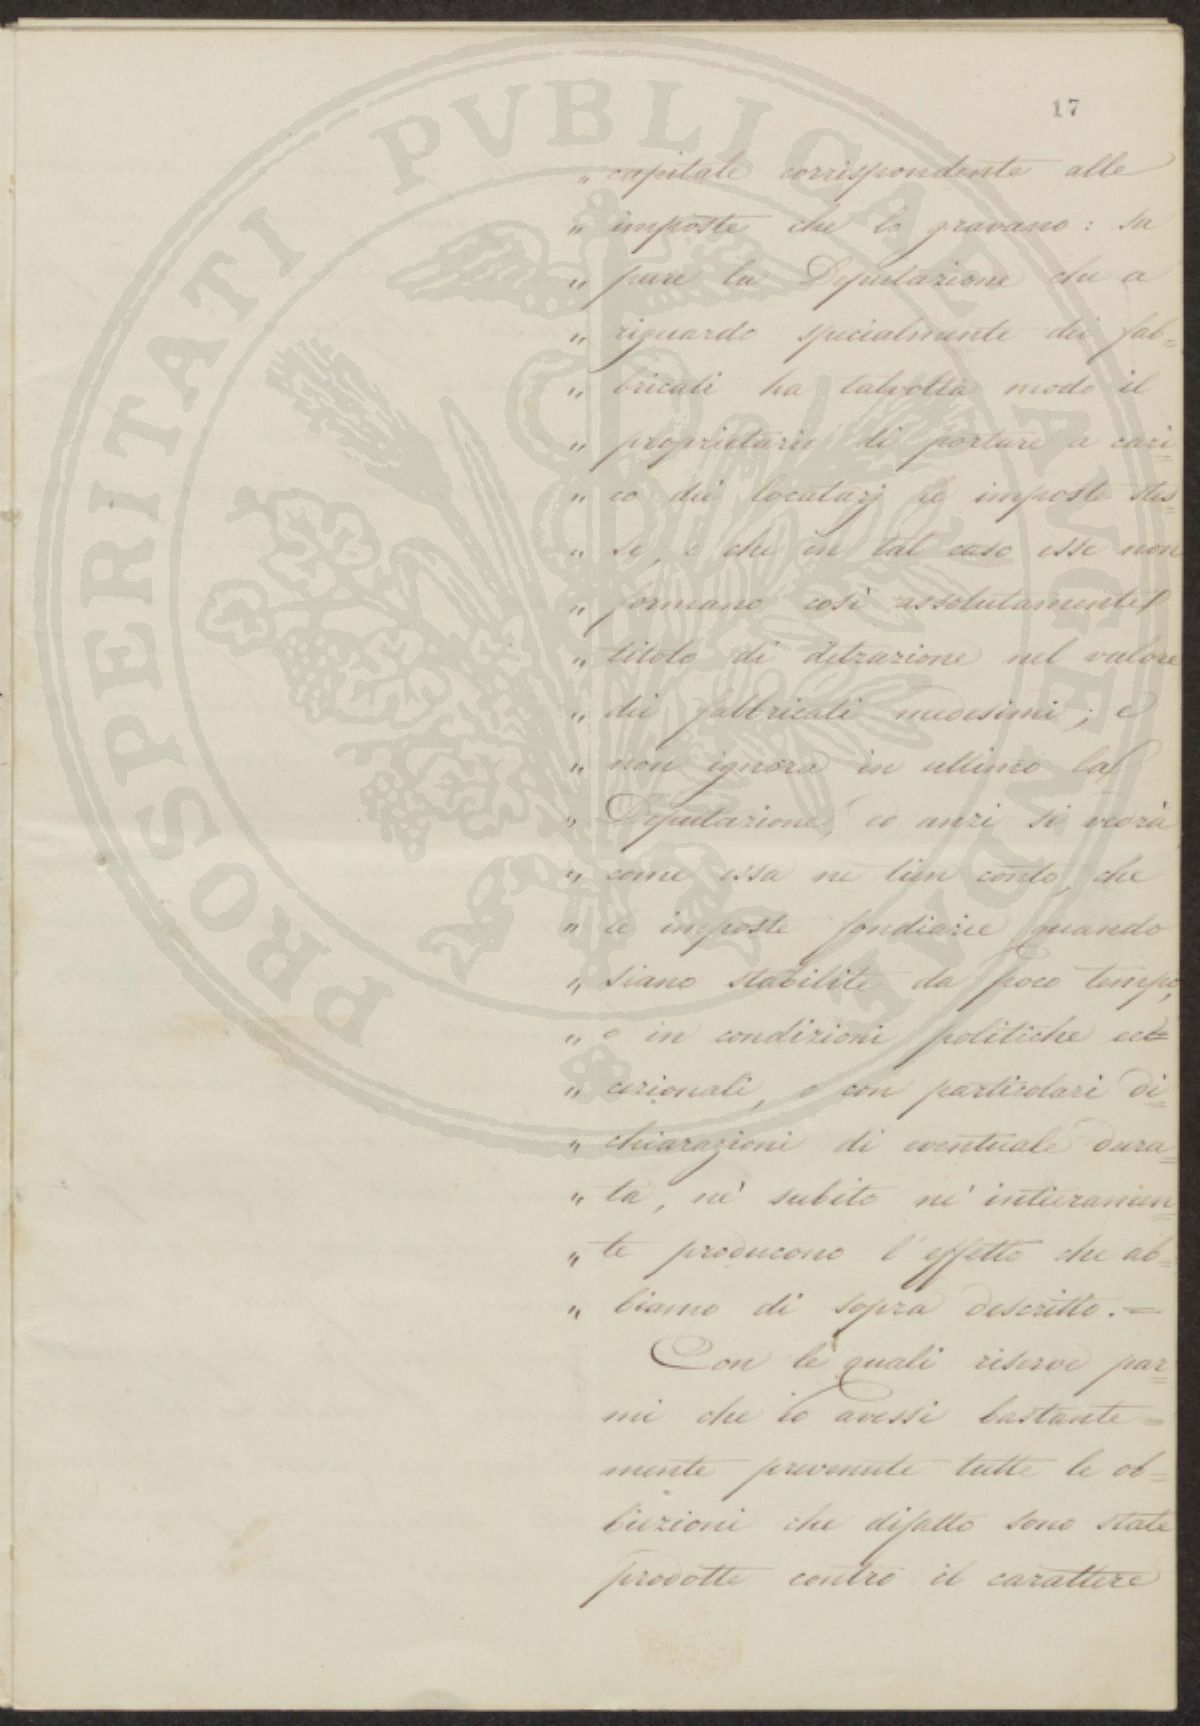 PROSPERITATI PVBLICAE AVGENDAE
17
„ capitale corrispondente alle
„ imposte che lo gravano: sa
„ pure la Deputazione che a
„ riguardo specialmente dei fab=
„ bricati ha talvolta modo il
„ proprietario di portare a cari=
„ co dei locatarj le imposte stes=
„ se, e che in tal caso esse non
„ formano così assolutamente
„ titolo di detrazione nel valore
„ dei fabbricati medesimi; e
„ non ignora in ultimo la
„ Deputazione, ed anzi si vedrà
„ come essa ne tien conto, che
„ le imposte fondiarie quando
„ siano stabilite da poco tempo,
„ o in condizioni politiche ec=
„ cezionali, o con particolari di=
„ chiarazioni di eventuale dura=
„ ta, nè subito nè intieramen=
„ te producono l'effetto che ab=
„ biamo di sopra descritto. =
Con le quali riserve par=
mi che io avessi bastante=
mente prevenute tutte le ob=
biezioni che difatto sono state
prodotte contro il carattere